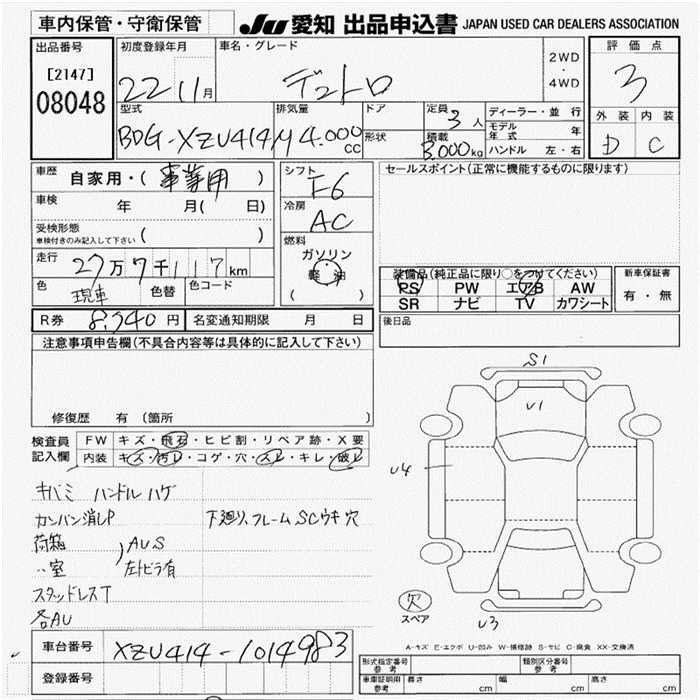 車内保管・守衛保管
JU 愛知 出品申込書 JAPAN USED CAR DEALERS ASSOCIATION
出品番号
[2147]
08048
初度登録年月
22 11月
車名・グレード
デュトロ
2WD
・
4WD
評価点
3
外装 内装
D C
型式
BDG-XZU414M
排気量
4.000
CC
ドア
形状
定員
3人
積載
3.000kg
ディーラー・並行
モデル年式 年
ハンドル 左・右
車歴
自家用・(事業用)
車検
年 月( 日)
受検形態
車検付きのみ記入して下さい ( )
走行
27万7千117km
色
現車
色替
色コード
シフト
F6
冷房
AC
燃料
ガソリン
軽油
( )
セールスポイント(正常に機能するものに限ります)
装備品(純正品に限り○をつけてください)
PS PW エアB AW
SR ナビ TV カワシート
新車保証書
有・無
R券 8,340円
名変通知期限 月 日
後日品
注意事項申告欄(不具合内容等は具体的に記入して下さい)
修復歴 有 (箇所
検査員
記入欄
FW キズ・飛石・ヒビ割・リペア跡・X要
内装 キズ・汚レ・コゲ・穴・スレ・キレ・破レ
キバミ ハンドルハゲ
カンバン消しP
下廻り、フレームSCウキ穴
荷箱
〃室
AUS
左トビラ有
スタッドレスT
各AU
S1
U1
U4
U3
欠
スペア
A-キズ E-エクボ U-凹み W-補修跡 S-サビ C-腐食 XX-交換済
車台番号
XZU414-1014983
登録番号
形式指定番号
参考
類別区分番号
参考
車庫証明用
参考
長さ cm
幅 cm
高さ cm